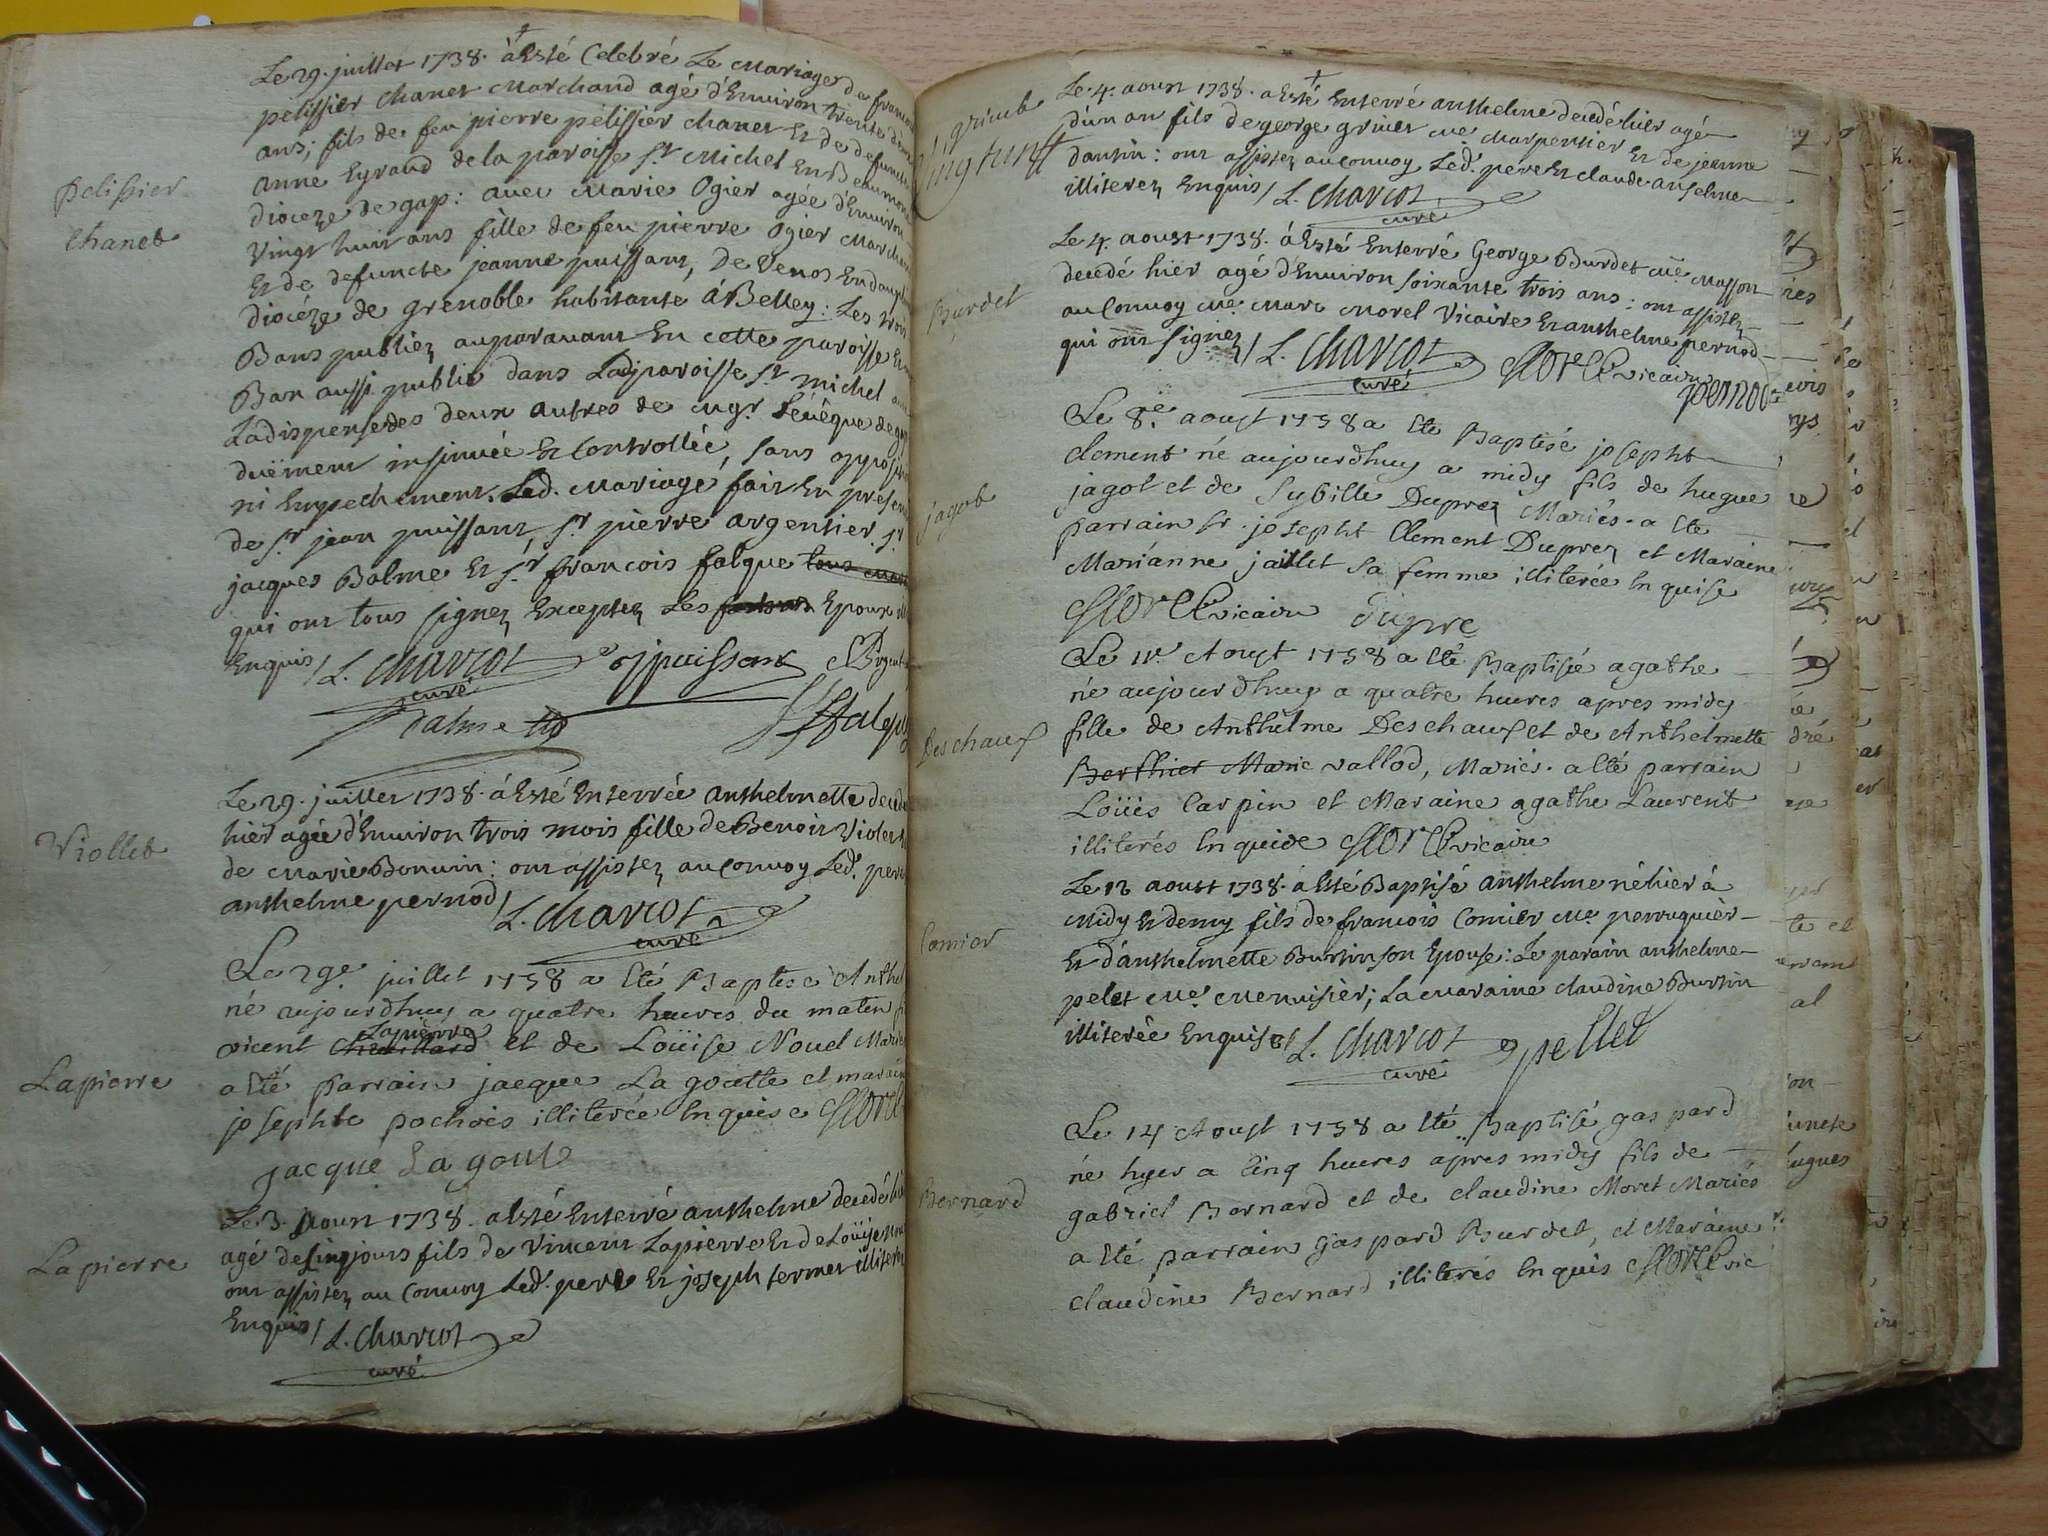 Le 29. juillet 1738. à Esté Celebré Le Mariage de francois
pelissier Chanet Marchand agé d'Environ trente deux
ans; fils de feu pierre pélissier chanet Et de defuncte
anne Eyraud de la paroisse St Michel En Beaumont
dioceze de gap: avec Marie Ogier agée d'Environ
Vingt huit ans fille de feu pierre Ogier Marchand
Et de defuncte jeanne puissant, De Venos En dauphi
diocéze de grenoble habitante à Belley: Les trois
Bans publiez auparavant En cette paroisse Et un
Ban aussi publié dans Lad. paroisse St michel avec
La dispense des deux autres de mgr. L'évêque de gap
duëment insinuée Et Controllée, sans opposi
ni Empechement. Led. Mariage fait En presen
de sr jean puissant, sr pierre argentier, sr
jacques Balme Et sr francois falque tous
qui ont tous signez Exceptez Les Epoux
Enquis / L. Charcot puissant
curé
Balme
Pelissier
Chanet
Le 29. juillet 1738. à Esté Enterrée anthelmette decedée
hier agée d'Environ trois mois fille de Benoit Violet
de Marie Bonvin: ont assistez au Convoy Led. pere
anthelme pernod / L. Charcot
curé
Viollet
Le 29e. juillet 1738 a Eté Baptisé Anthel
né aujourdhuy a quatre heures du matin
vicent Lapierre et de Loüise Novel Mariés
a Eté parrain jacque La goutte et maraine
josephte pochois illiterée Enquise Morel
jacque La goute
Lapierre
Le 3. aoust 1738. a Esté Enterré anthelme decedé hier
agé de Cinq jours fils de Vincent Lapierre Et de Loüise
ont assistez au Convoy Led. pere Et joseph fermet illiterez
Enquis / L. Charcot
curé
Lapierre
Le 4. aoust 1738. a Esté Enterré anthelme decedé hier agé
d'un an fils de george Me Charpentier Et de jeanne
dantin: ont assistez au Convoy Led. pere Et claude anselme
illiterez Enquis / L. Charcot
curé
Le 4. aoust 1738. à Esté Enterré George Burdet Me Masson
decedé hier agé d'Environ soixante trois ans: ont assistez
au Convoy Me. Marc Morel Vicaire Et anthelme pernod
qui ont signez / L. Charcot Morel vicaire
curé pernod
Burdet
Le 8e. aoust 1738 a Eté Baptisé josepht
clement né aujourdhuy a midy fils de hugue
jagot et de Sybille Duprez Mariés. a Eté
parrain sr. josepht Clement Duprez et Maraine
Marianne jaillet sa femme illiterée Enquise
Morel vicaire Dupre
jagot
Le 11e. Aoust 1738 a Eté Baptisée agathe
né aujourdhuy a quatre heures apres midy
fille de Anthelme Deschaux et de Anthelmette
Berthier Marie vallod, Mariés. a Eté parrain
Loüis Carpin et Maraine agathe Laurent
illiterés Enquide Morel vicaire
Deschaux
Le 12 aoust 1738. à Esté Baptisé anthelme né hier à
Midy Et demy fils de francois Comier Me. perruquier
Et d'anthelmette Burtin son Epouse: Le parain anthelme
pelet Me. Menuisier; La Maraine claudine Burtin
illiterée Enquise / L. Charcot pellet
curé
Comier
Le 14 Aoust 1738 a Eté Baptisé gaspard
né hyer a Cinq heures apres midy fils de
gabriel Bernard et de claudine Moret Mariés
a Eté parrain gaspard Burdet, et Maraine
claudine Bernard illiterés Enquis Morel vic
Bernard